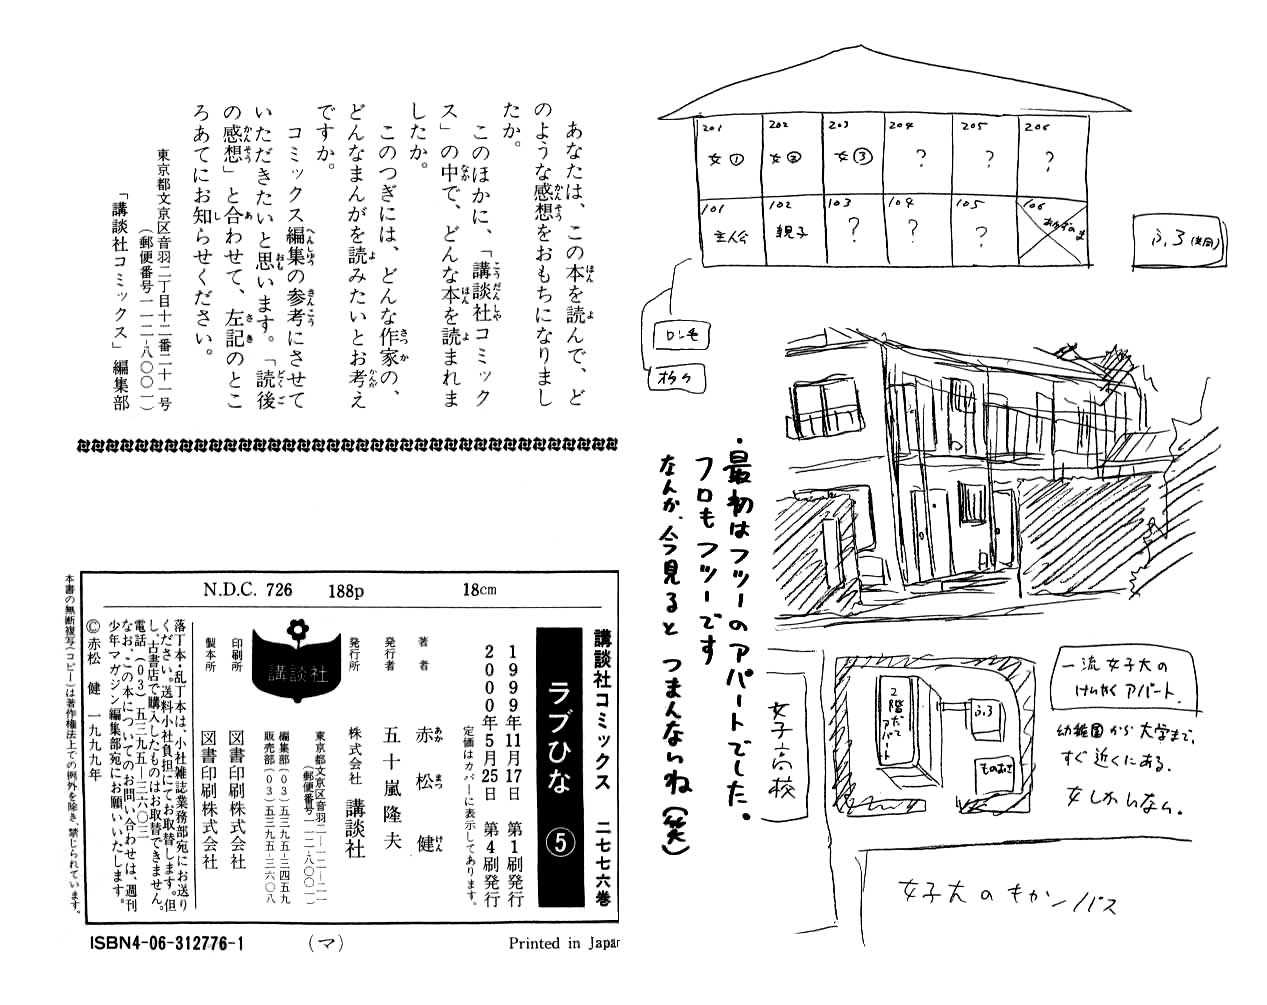 201
202
203
204
205
206
女①
女②
女③
?
?
?
101
102
103
104
105
106
主人公
親子
?
?
?
ふろ(共同)
・最初はフツーのアパートでした。
フロもフツーです
なんか、今見ると つまんないね(笑)
女子高校
2階だてアパート
ふろ
ものおき
一流女子大の
けいやくアパート.
幼稚園から大学まで、
すぐ近くにある.
女しかいない。
女子大のキャンパス
あなたは、この本を読んで、ど
のような感想をおもちになりまし
たか。
このほかに、「講談社コミック
ス」の中で、どんな本を読まれま
したか。
このつぎには、どんな作家の、
どんなまんがを読みたいとお考え
ですか。
コミックス編集の参考にさせて
いただきたいと思います。「読後
の感想」と合わせて、左記のとこ
ろあてにお知らせください。
東京都文京区音羽二丁目十二番二十一号
(郵便番号一一二-八〇〇一)
「講談社コミックス」編集部
N.D.C. 726 188p 18cm
講談社コミックス 二七七六巻
ラブひな ⑤
1999年11月17日 第1刷発行
2000年5月25日 第4刷発行
定価はカバーに表示してあります。
著者 赤松 健
発行者 五十嵐隆夫
発行所 株式会社 講談社
東京都文京区音羽二-一二-二一
(郵便番号一一二-八〇〇一)
編集部(03)五三九五-三四五九
販売部(03)五三九五-三六〇八
講談社
印刷所 図書印刷株式会社
製本所 図書印刷株式会社
落丁本・乱丁本は、小社雑誌業務部宛にお送り
ください。送料小社負担にてお取替します。但
し、古書店で購入したものはお取替できません。
電話(03)五三九五-三六〇三
なお、この本についてのお問い合わせは、週刊
少年マガジン編集部宛にお願いいたします。
©赤松 健 一九九九年
本書の無断複写(コピー)は著作権法上での例外を除き、禁じられています。
ISBN4-06-312776-1 (マ) Printed in Japan